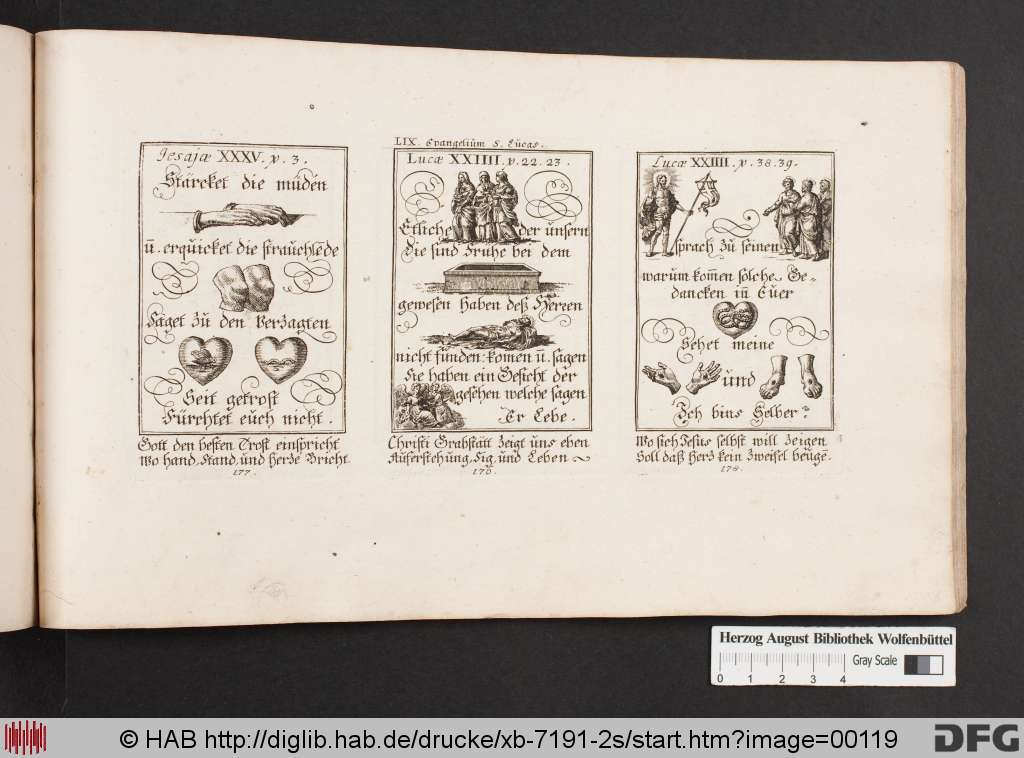 Jesajæ XXXV. v. 3.
Stärcket die müden
uñ. erquicket die strauchlēde
Saget zu den Verzagten
Seit getrost
Fürchtet euch nicht.
Gott den besten Trost einspricht
Wo hand, Stand, und Herze Bricht.
177.
LIX. Evangelium S. Lucas.
Lucæ XXIIII. v. 22. 23.
Etliche der unsern
Die sind Fruhe bei dem
gewesen haben deß Herren
nicht funden: komen uñ. sagen
Sie haben ein Gesicht der
gesehen welche sagen
Er Lebe.
Christi Grabstätt zeigt uns eben
Aufferstehung, Sig, und Leben
Lucæ XXIIII. v. 38. 39.
sprach zu seinen
warum kom̄en solche Ge-
dancken in Euer
Sehet meine
und
Ich bins Selber?
Wo sich Jesus selbst will zeigen
Soll daß Herz kein Zweifel beugē.
178.
Herzog August Bibliothek Wolfenbüttel
0 1 2 3 4 Gray Scale
© HAB http://diglib.hab.de/drucke/xb-7191-2s/start.htm?image=00119
DFG